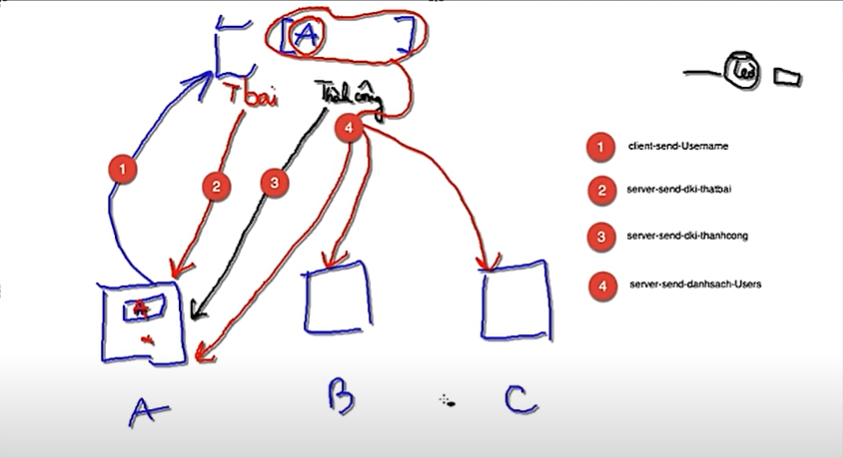 [A ]
T bai
Thành công
4
1
2
3
1 client-send-Username
2 server-send-dki-thatbai
3 server-send-dki-thanhcong
4 server-send-danhsach-Users
A
A
B
C